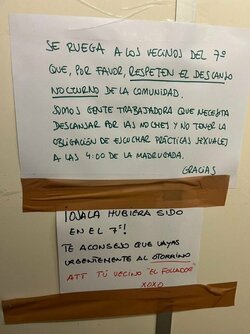 SE RUEGA A LOS VECINOS DEL 7º
QUE, POR FAVOR, RESPETEN EL DESCANSO
NOCTURNO DE LA COMUNIDAD.
SOMOS GENTE TRABAJADORA QUE NECESITA
DESCANSAR POR LAS NOCHES Y NO TENER LA
OBLIGACIÓN DE ESCUCHAR PRÁCTICAS SEXUALES
A LAS 4:00 DE LA MADRUGADA.
GRACIAS
¡OJALA HUBIERA SIDO
EN EL 7º!
TE ACONSEJO QUE VAYAS
URGENTEMENTE AL OTORRINO
ATT TÚ VECINO "EL FOLLADOR"
XOXO